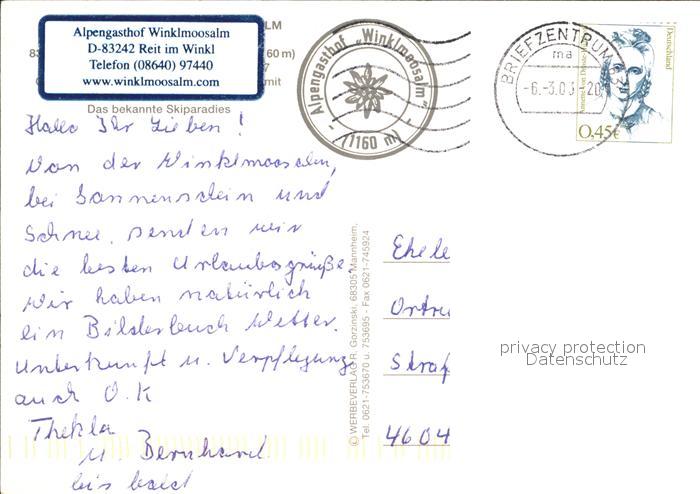 Alpengasthof Winklmoosalm
D-83242 Reit im Winkl
Telefon (08640) 97440
www.winklmoosalm.com
LM
83
60 m)
7
mit
Das bekannte Skiparadies
Alpengasthof „Winklmoosalm"
- (1160 m) -
BRIEFZENTRUM
ma
-6.-3.03-20
Deutschland
Annette von Droste
0,45€
Hallo Ihr Lieben!
Von der Winklmoosalm,
bei Sonnenschein und
Schnee, senden wir
die besten Urlaubsgrüße.
Wir haben natürlich
ein Bilderbuch Wetter.
Unterkunft u. Verpflegung
auch O.K
Thekla
u. Bernhard
bis bald
© WERBEVERLAG R. Gorzinski, 68305 Mannheim,
Tel. 0621-753670 u. 753695 - Fax 0621-745924
Ehele
Ortru
Straß
4604
privacy protection
Datenschutz